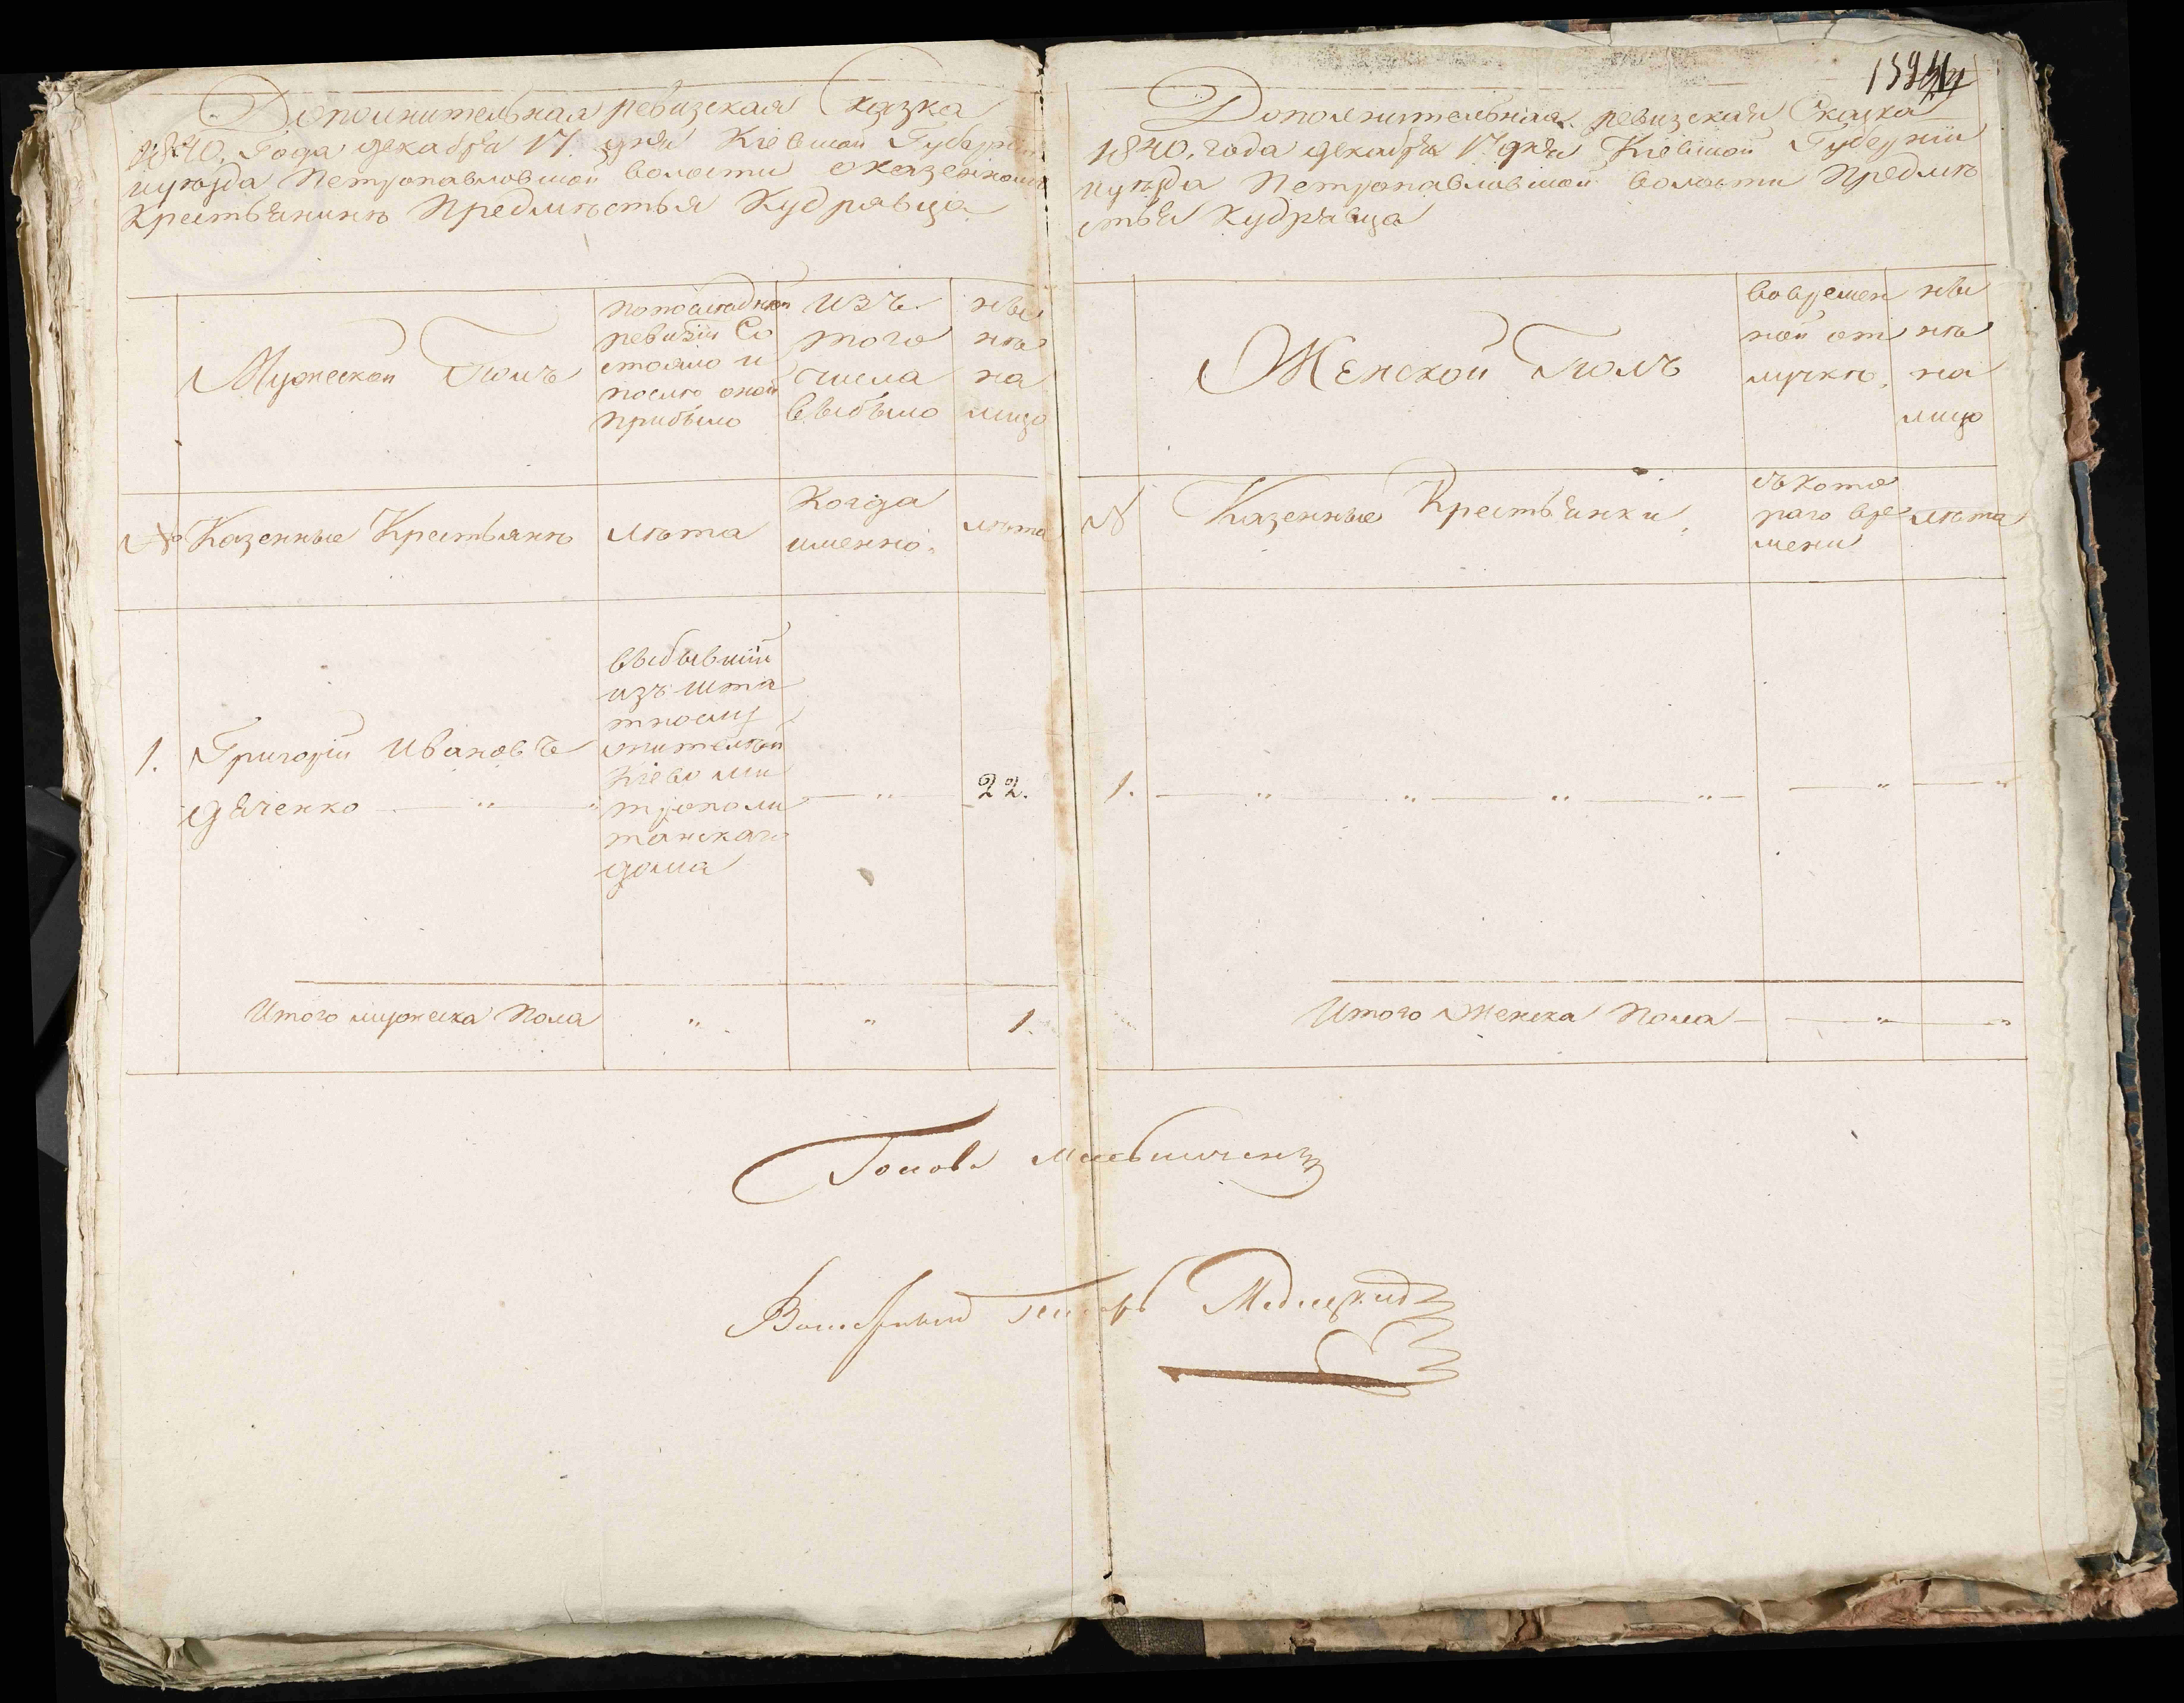 Дополнительная ревизская Сказка
1840. Года декабря 17 дня Кіевской Губерніи
и уѣзда Петропавловской волости о казенномъ
Крестьянинѣ Предмѣстья Кудрявца
Мужеской Полъ
по последней
ревизіи Со
стояло и
послѣ оной
прибыло
изъ
того
числа
выбыло
ны
нѣ
на
лицо
№ Казенные Крестьянѣ
лѣта
Когда
именно.
лѣта
1. Григорій Ивановъ
дяченко
выбывшій
изъ шта
тнослу
жителей
Кіево ми
трополи
танскаго
дома
22.
Итого мужеска Пола
1.
Дополнительная ревизская Сказка
1840. года декабря 17 дня Кіевской Губерніи
и уѣзда Петропавловской волости Предмѣ
стья Кудрявца
Женской Полъ
во времен
ной от
лучкѣ.
ны
нѣ
на
лицо
№ Казенные Крестьянки
съ кото
раго вре
мени
лѣта
1.
Итого Женска Пола
Голова
Волостный Писарь